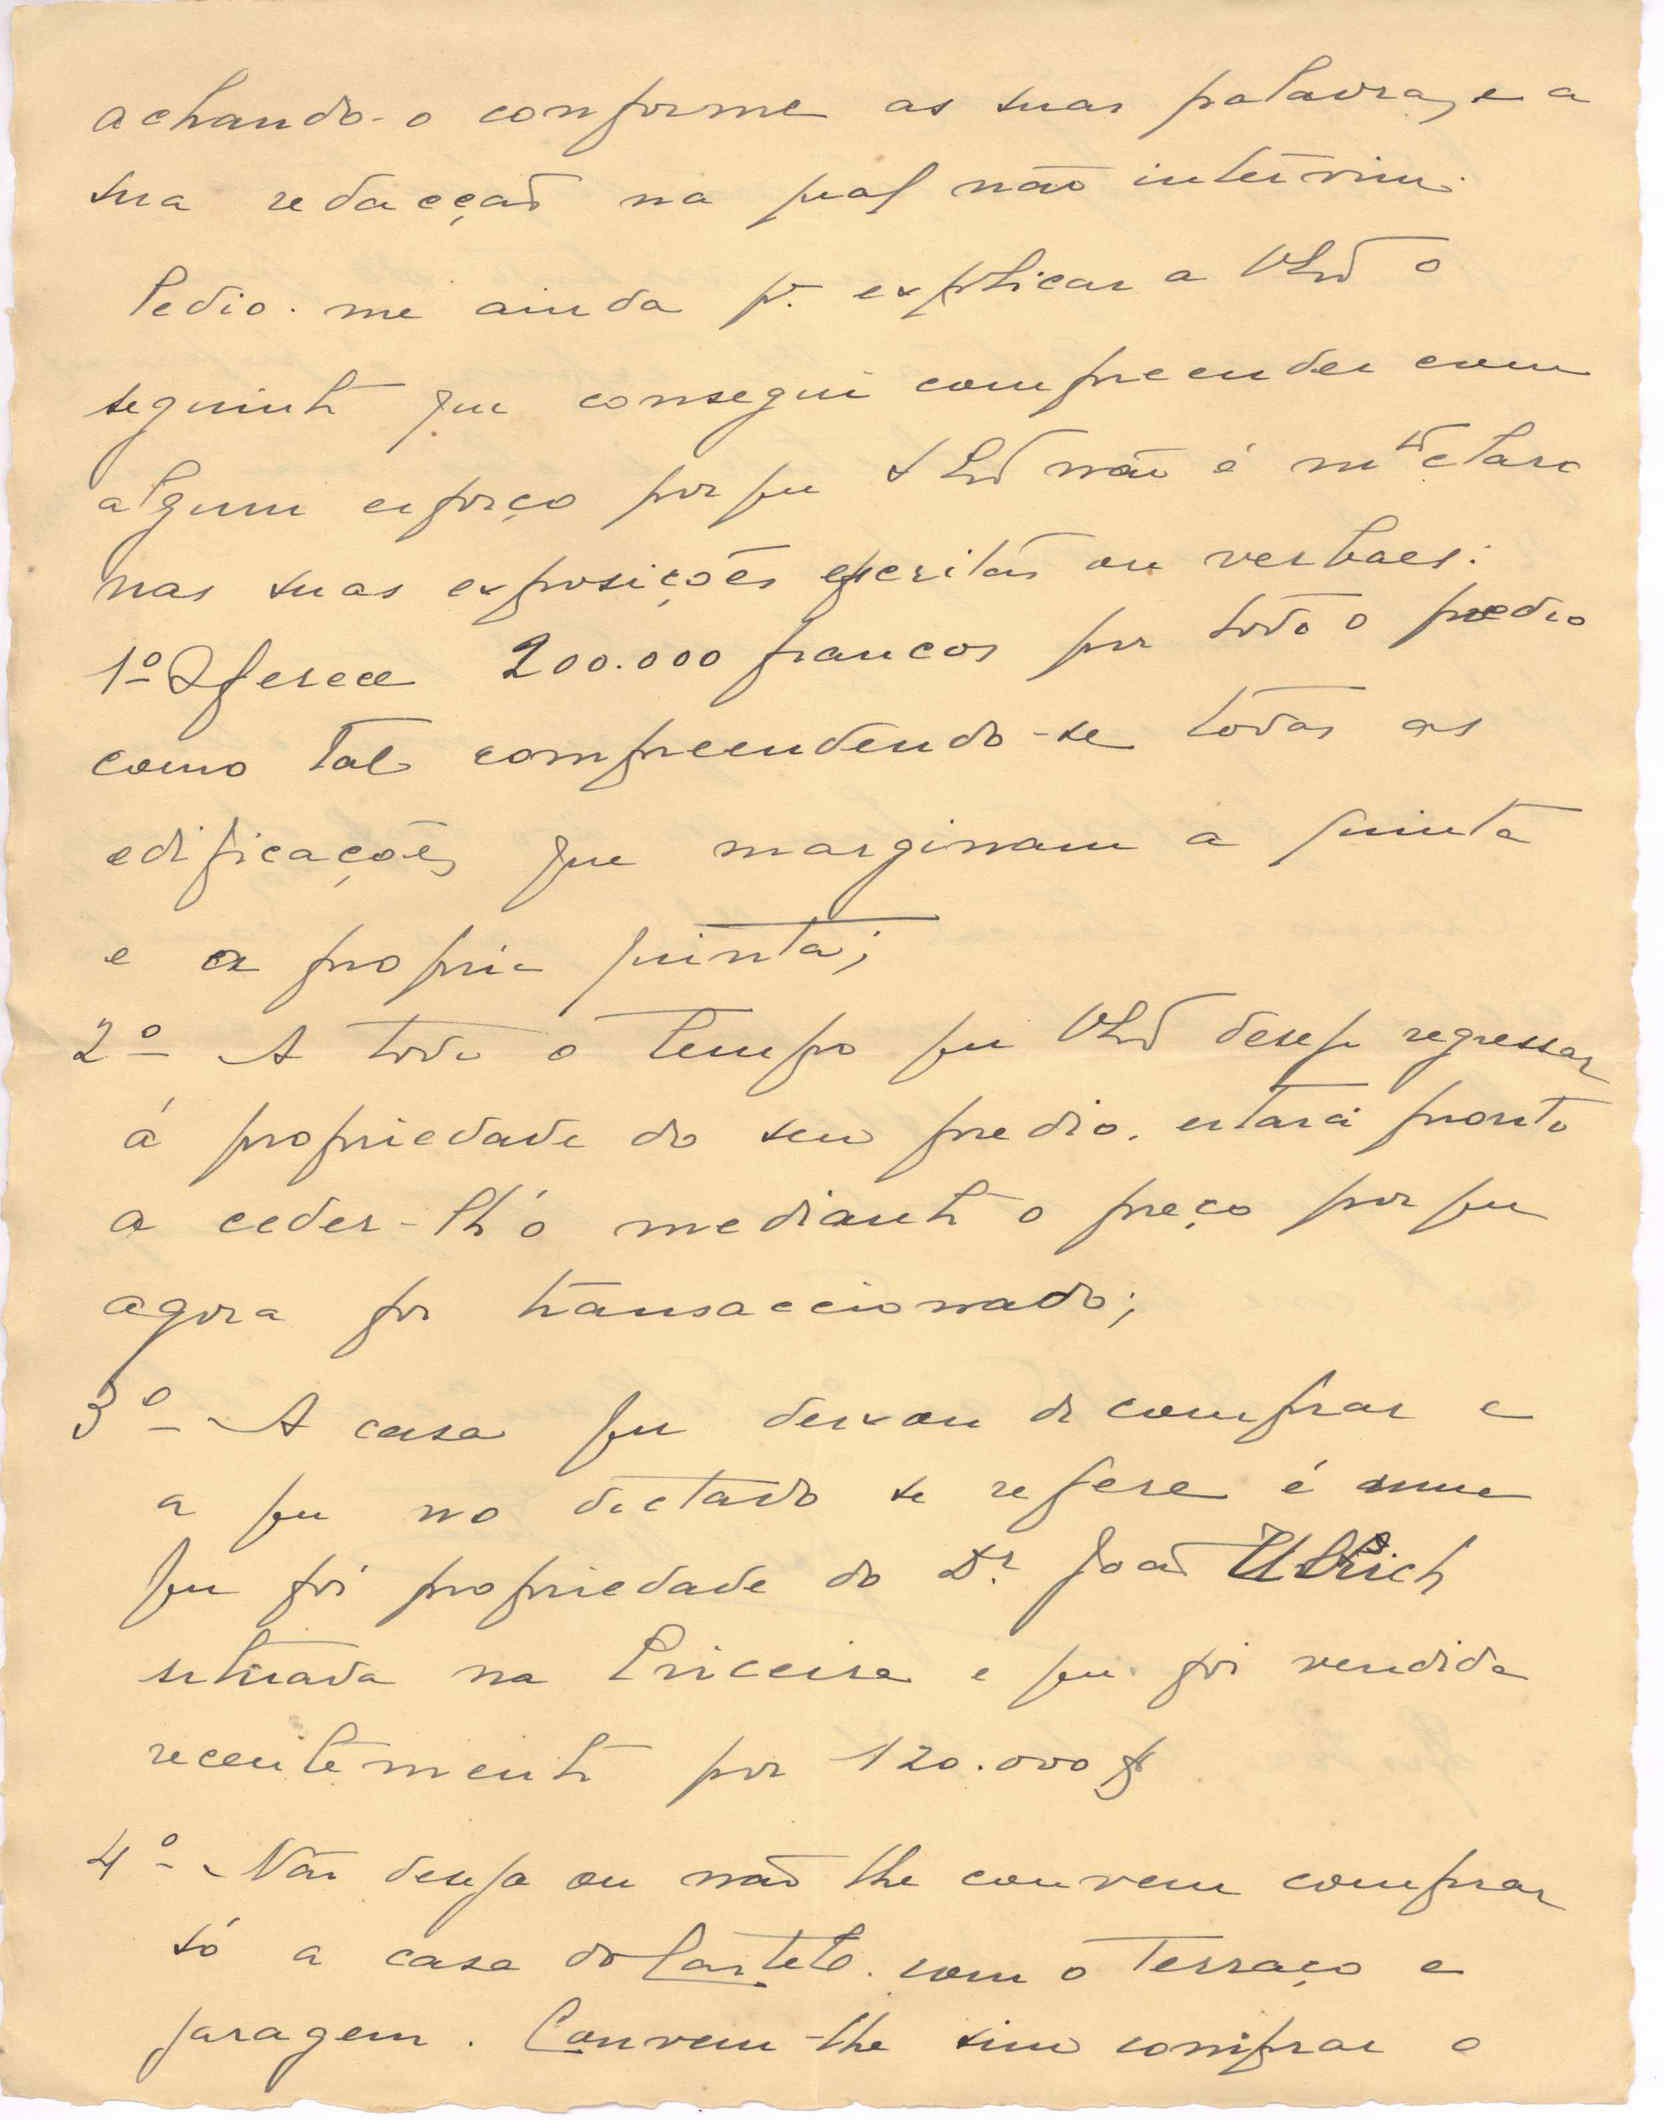 achando-o conforme as suas palavras, e a
sua redacção na qual não intervim.
Pedio-me ainda pª explicar a
seguinte que consegui compreender com
algum esforço por que não é mto claro
nas suas exposições escritas ou verbaes:
1º Oferece 200.000 francos por todo o predio
como tal compreendendo-se todas as
edificações que marginam a quinta
e a propria quinta;
2º - A todo o tempo que deseje regressar
á propriedade do seu predio, estará pronto
a ceder-lh'o mediante o preço por que
agora for transaccionado;
3º - A casa que deixou de comprar e
a que no dictado se refere é uma
que foi propriedade do Dr. João Ulrich
situada na Ericeira e que foi vendida
recentemente por 120.000$
4º - Não deseja ou não lhe convem comprar
só a casa do Castelo com o terraço e
garagem. Convem-lhe sim comprar o